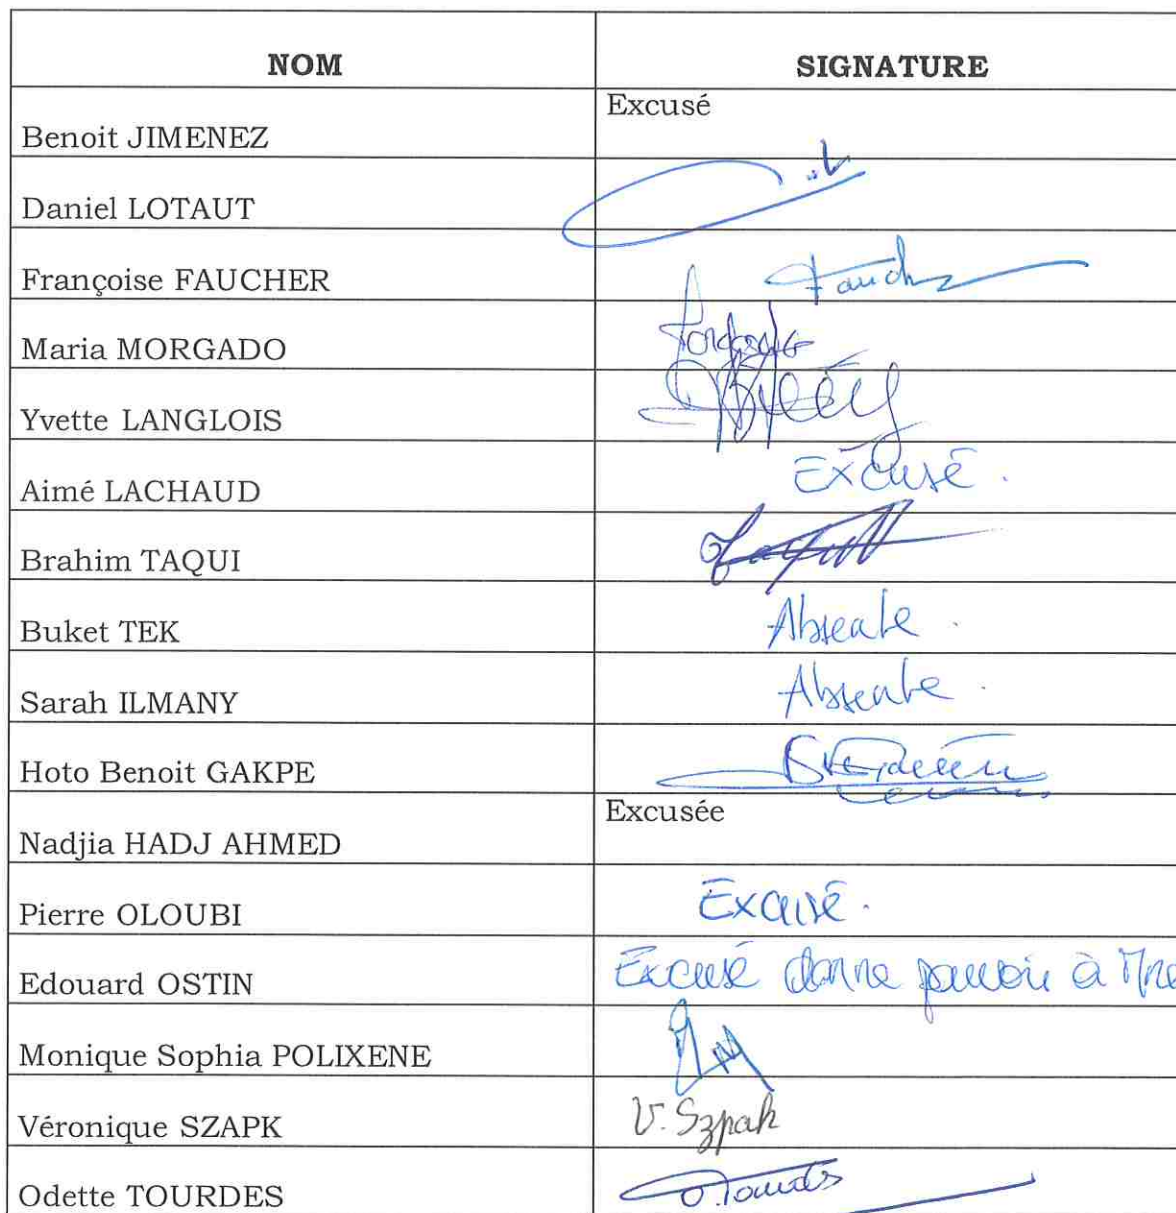 NOM SIGNATURE
Benoit JIMENEZ Excusé
Daniel LOTAUT
Françoise FAUCHER
Maria MORGADO
Yvette LANGLOIS
Aimé LACHAUD Excusé.
Brahim TAQUI
Buket TEK Absente.
Sarah ILMANY Absente.
Hoto Benoit GAKPE
Nadjia HADJ AHMED Excusée
Pierre OLOUBI Excusé.
Edouard OSTIN Excusé donne pouvoir à Mme
Monique Sophia POLIXENE
Véronique SZAPK V. Szpak
Odette TOURDES O. Tourdes